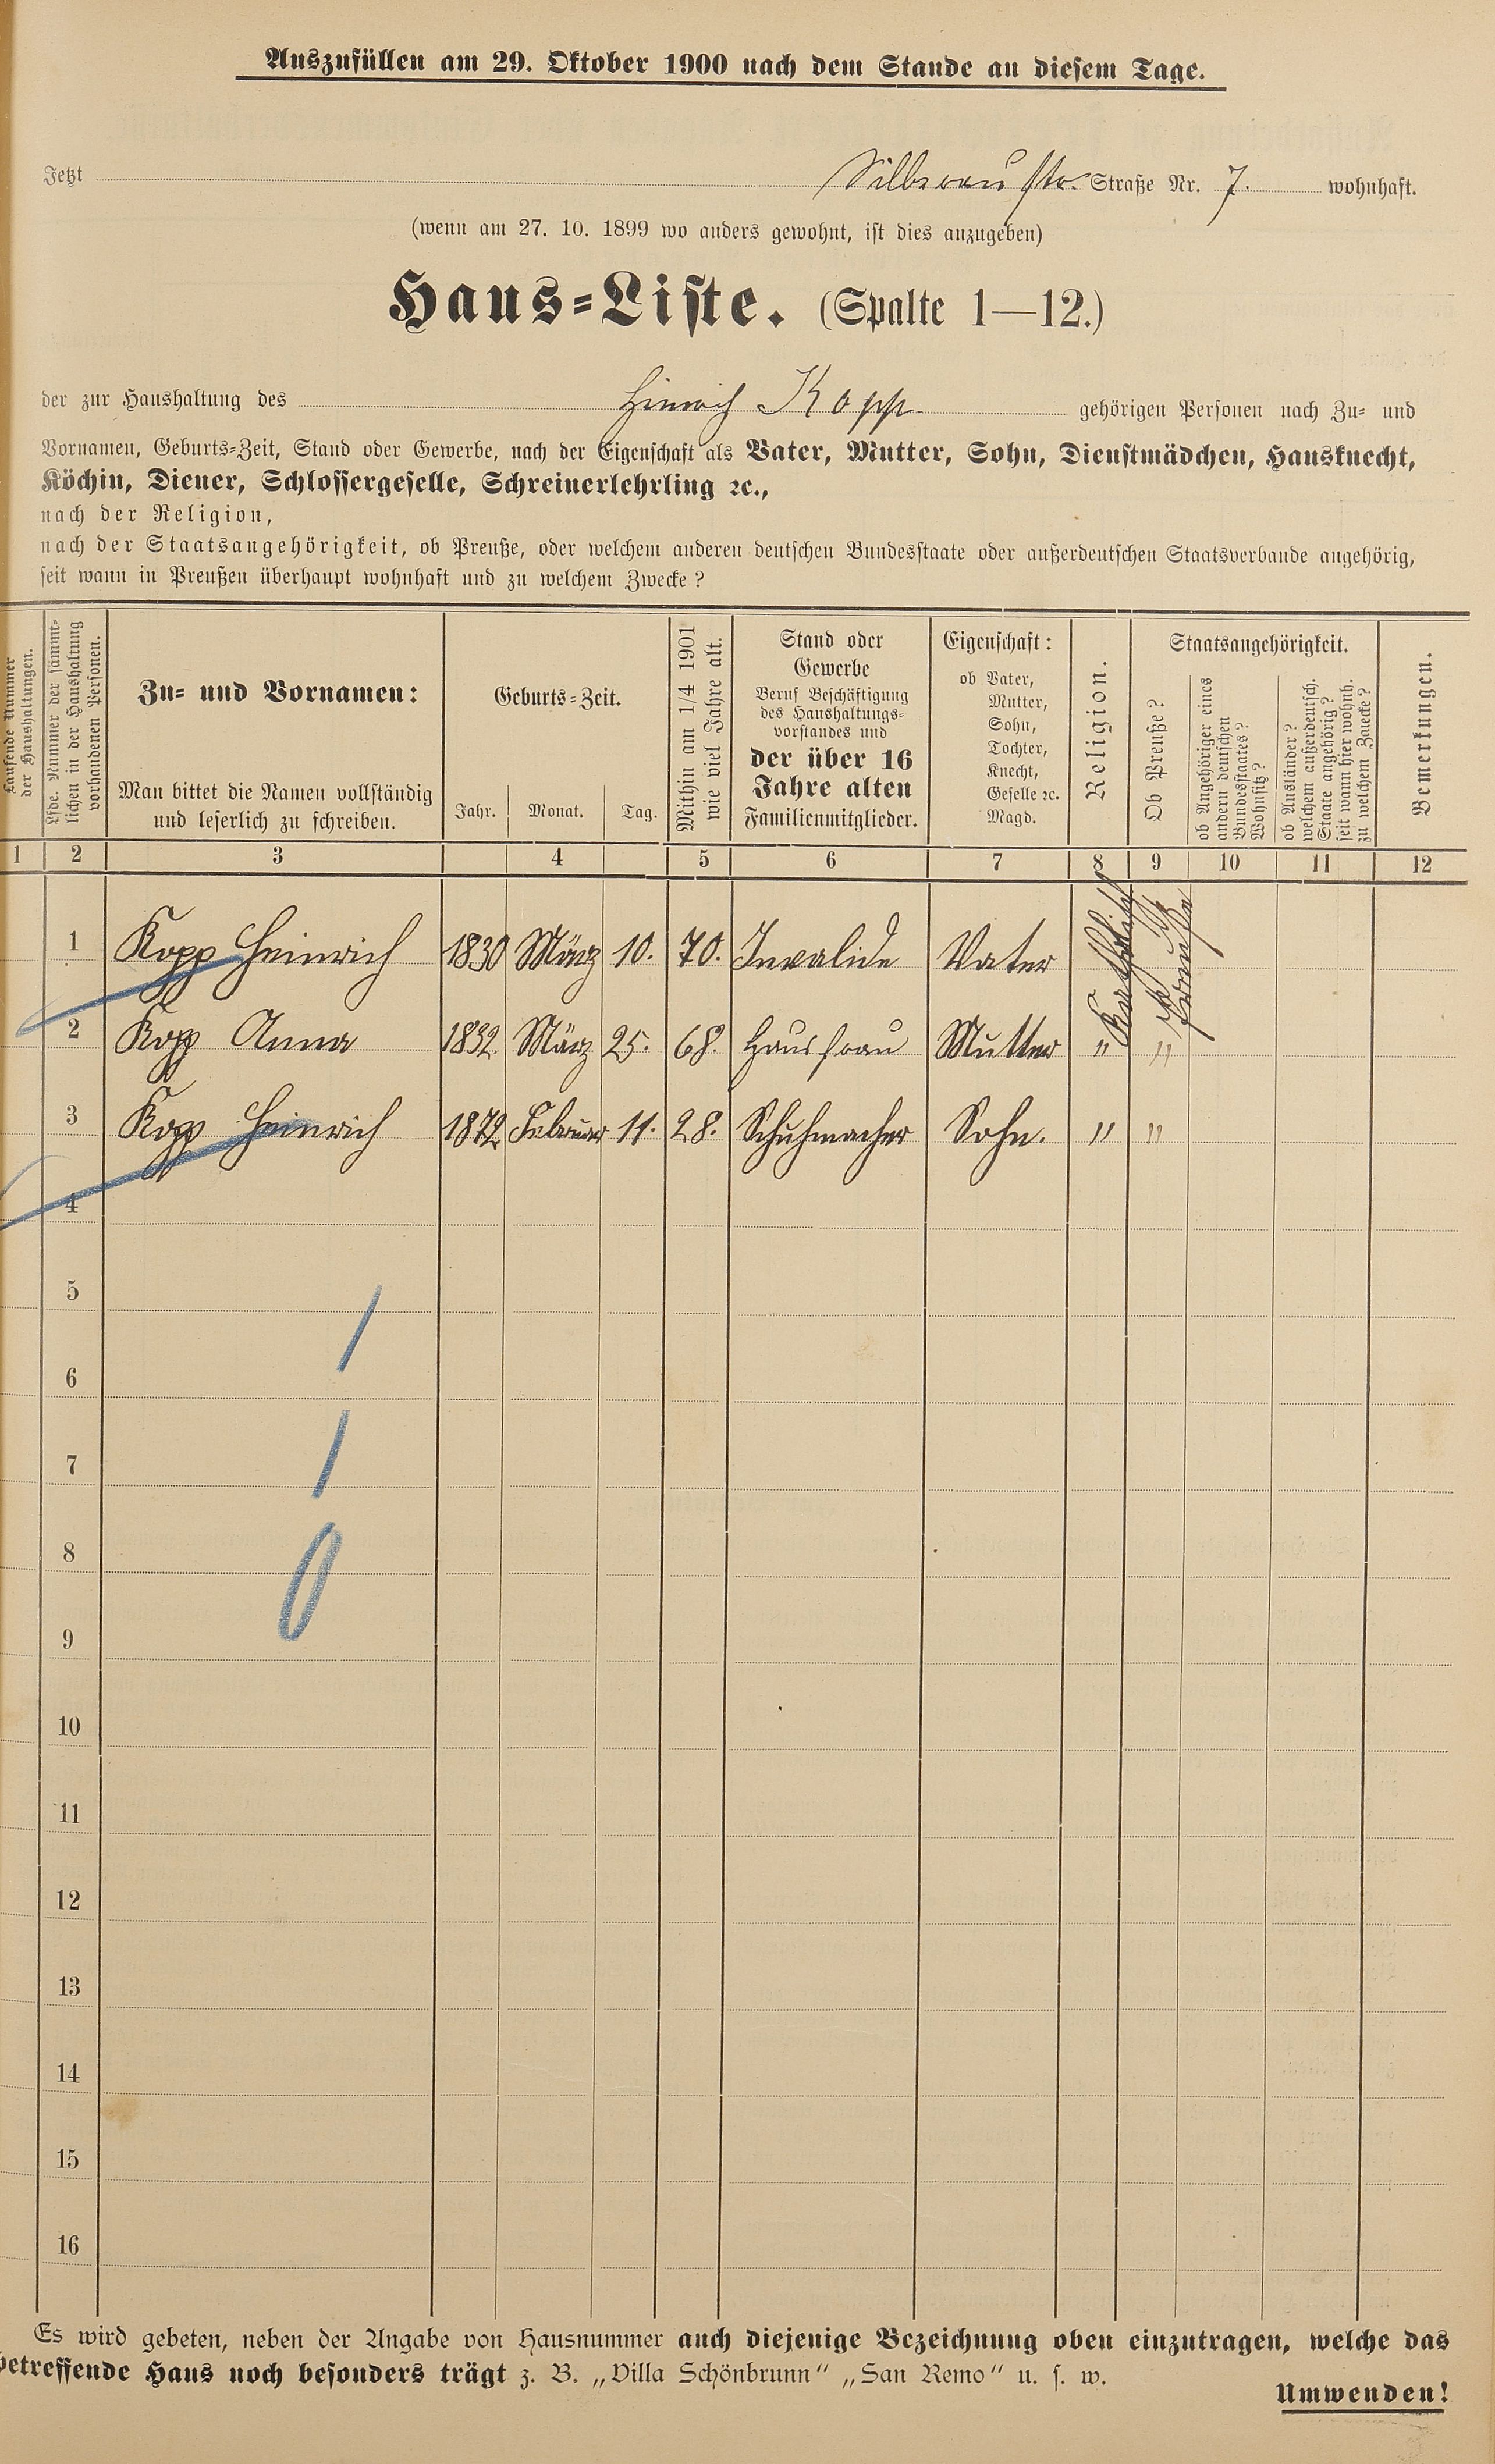 Auszufüllen am 29. Oktober 1900 nach dem Stande an diesem Tage.
Jetzt Silberau str. Straße Nr. 7. wohnhaft.
(wenn am 27. 10. 1899 wo anders gewohnt, ist dies anzugeben)
Haus=Liste. (Spalte 1—12.)
der zur Haushaltung des Hinrich Kopp gehörigen Personen nach Zu= und
Vornamen, Geburts=Zeit, Stand oder Gewerbe, nach der Eigenschaft als Vater, Mutter, Sohn, Dienstmädchen, Hausknecht,
Köchin, Diener, Schlossergeselle, Schreinerlehrling ꝛc.,
nach der Religion,
nach der Staatsangehörigkeit, ob Preuße, oder welchem anderen deutschen Bundesstaate oder außerdeutschen Staatsverbande angehörig,
seit wann in Preußen überhaupt wohnhaft und zu welchem Zwecke?
Laufende Nummer
der Haushaltungen.
Lfde. Nummer der sämmt=
lichen in der Haushaltung
vorhandenen Personen.
Zu= und Vornamen:
Man bittet die Namen vollständig
und leserlich zu schreiben.
Geburts=Zeit.
Jahr. Monat. Tag.
Mithin am 1/4 1901
wie viel Jahre alt.
Stand oder
Gewerbe
Beruf Beschäftigung
des Haushaltungs=
vorstandes und
der über 16
Jahre alten
Familienmitglieder.
Eigenschaft:
ob Vater,
Mutter,
Sohn,
Tochter,
Knecht,
Geselle ꝛc.
Magd.
Religion.
Staatsangehörigkeit.
Ob Preuße?
ob Angehöriger eines
andern deutschen
Bundesstaates?
Wohnsitz?
ob Ausländer?
welchem außerdeutsch.
Staate angehörig?
seit wann hier wohnh.
zu welchem Zwecke?
Bemerkungen.
1 2 3 4 5 6 7 8 9 10 11 12
1 Kopp Heinrich 1830 März 10. 70. Invalide Vater Katholisch Preuße
2 Kopp Anna 1832. März 25. 68. Hausfrau Mutter " "
3 Kopp Heinrich 1872. Februar 11. 28. Schuhmacher Sohn. " "
4
5
6
7
8
9
10
11
12
13
14
15
16
1
1
0
Es wird gebeten, neben der Angabe von Hausnummer auch diejenige Bezeichnung oben einzutragen, welche das
betreffende Haus noch besonders trägt z. B. „Villa Schönbrunn" „San Remo" u. s. w.
Umwenden!